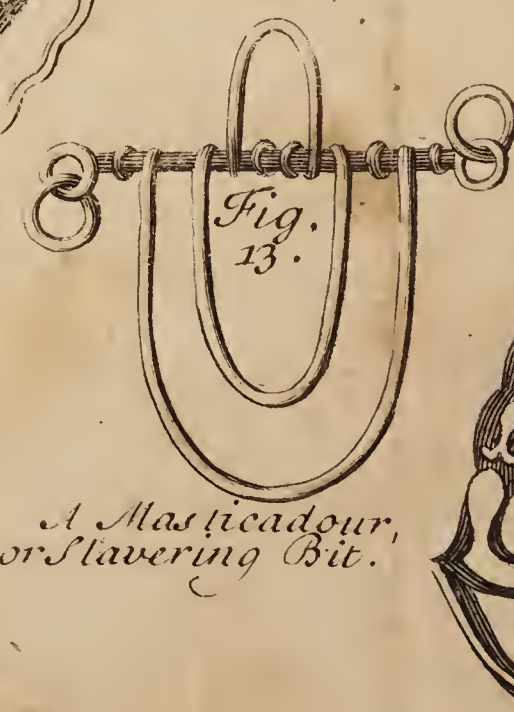 Fig.
13.
A Masticadour,
or Slavering Bit.